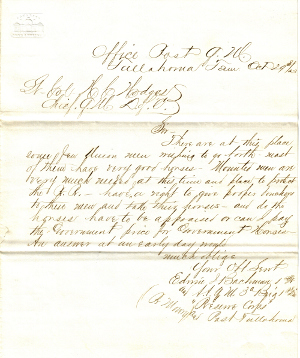 Office Post Q. M.
Tullahoma Tenn Oct 29th
Lt Col H. C. Hodges
Chief Q. M. D. C.
Sir
There are at this place
some men wishing to go North most
of them have very good horses - Mounted men are
very much needed at this time and place, to protect
the R.R. - have I a right to give proper vouchers
to these men and take their horses - and do the
horses have to be appraised or can I pay
the Government price for Government Horses -
An answer at an early day would
much oblige
Your Obt Servt
Edwin Bachman 1st
A. A. Q. M. 3d Brig 1st
Reserve Corps
Post Tullahoma